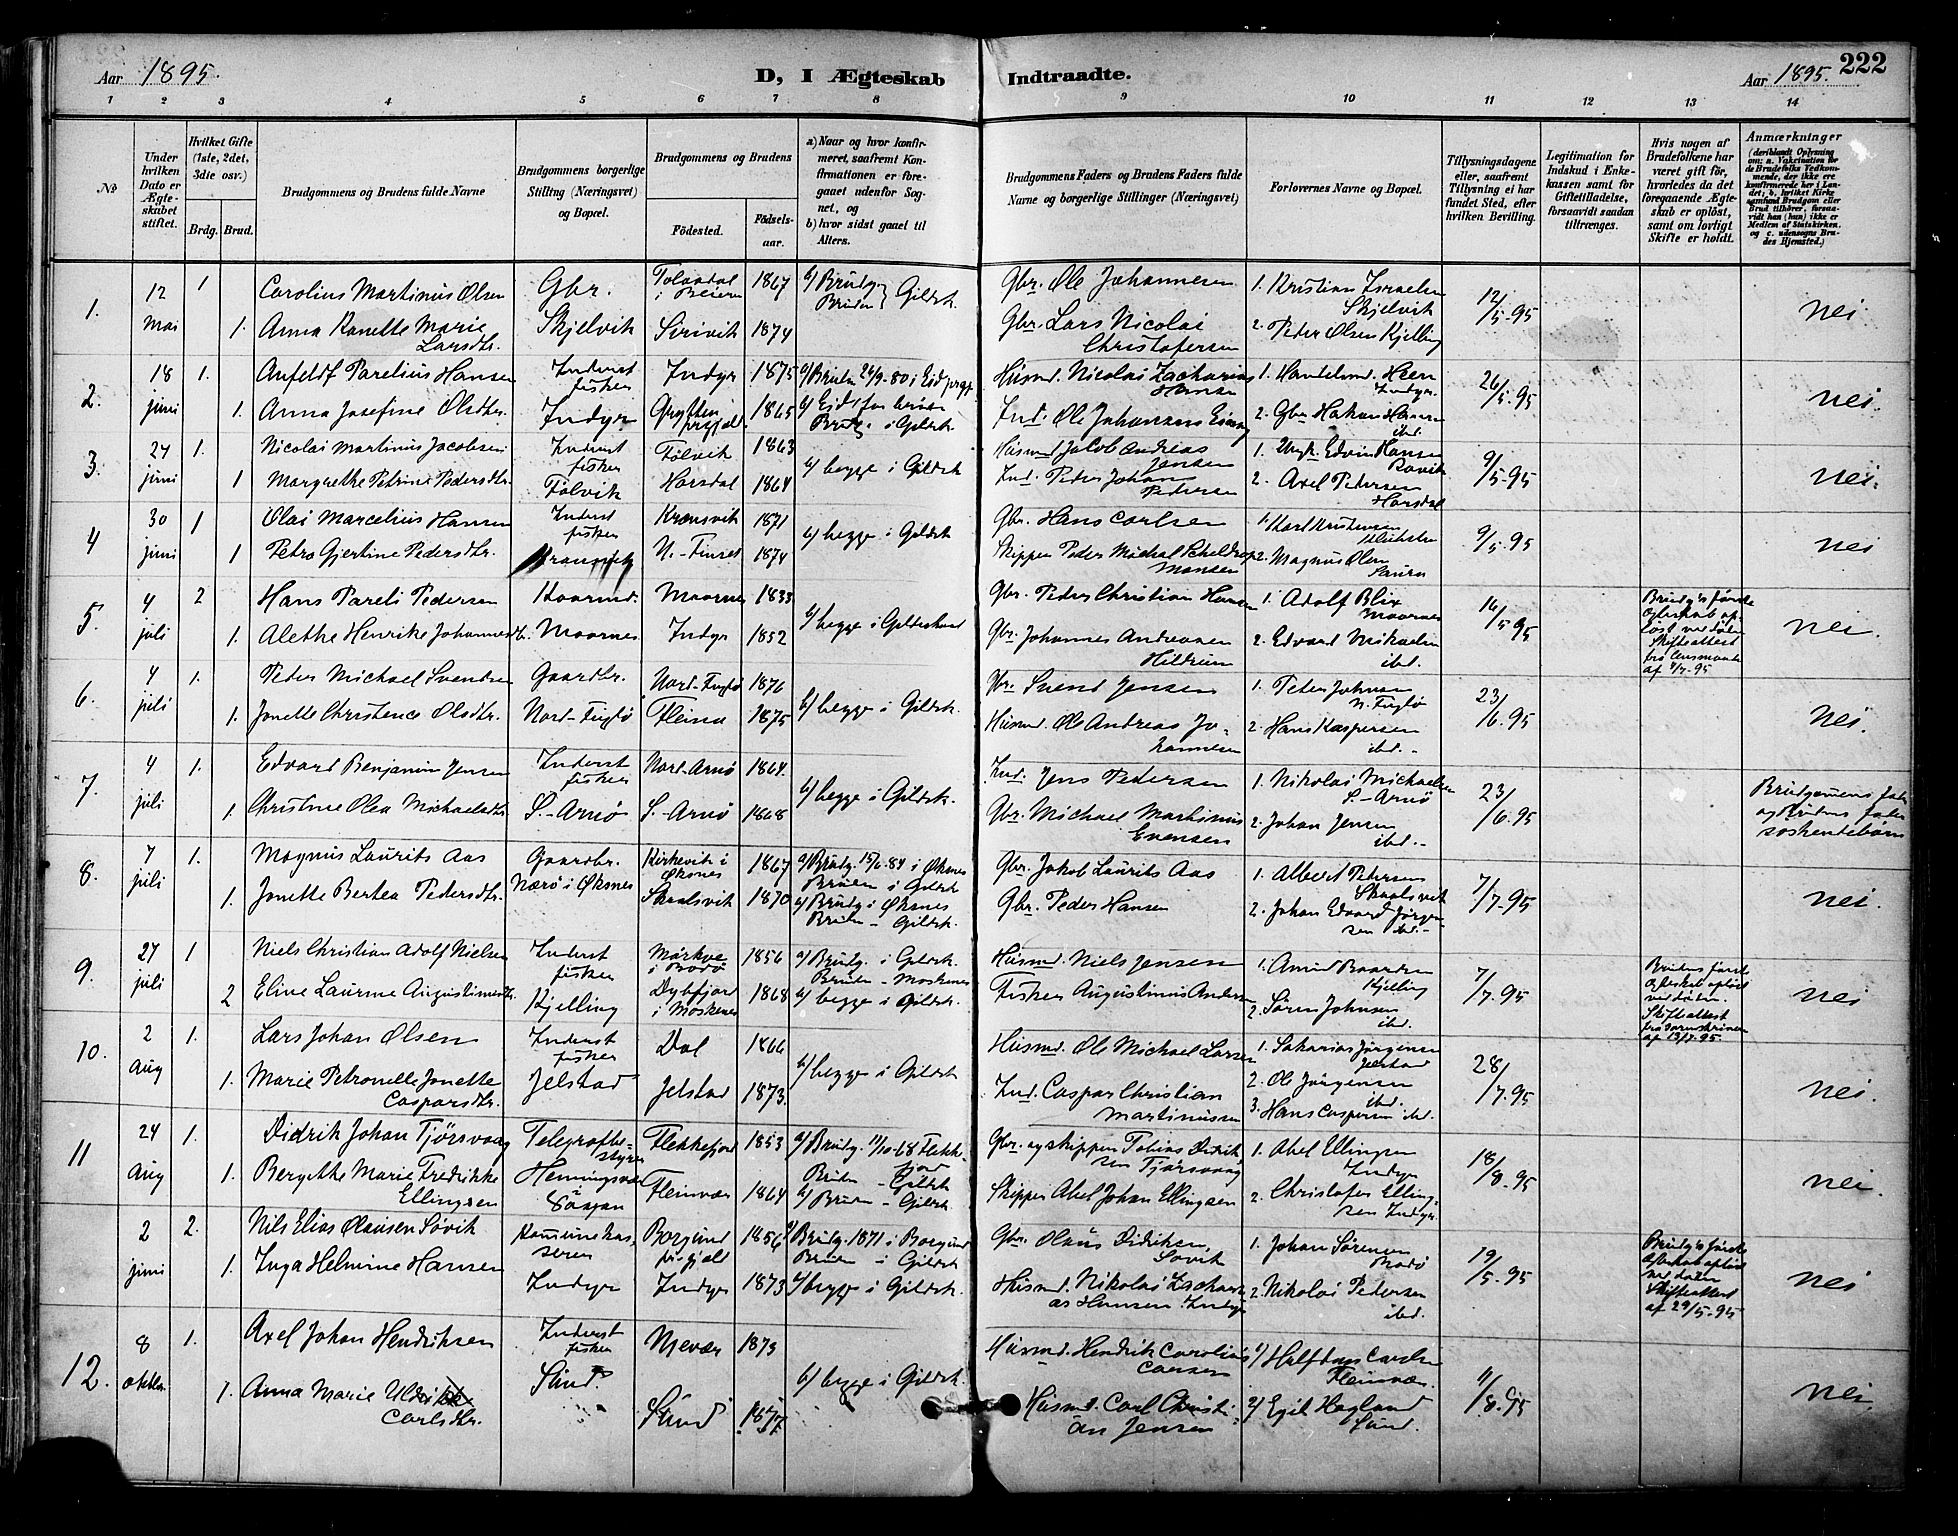 222
Aar 1895.
D, I Ægteskab Indtraadte.
Aar 1895.
1 2 3 4 5 6 7 8 9 10 11 12 13 14
No
Under hvilken Dato er Ægteskabet stiftet.
Hvilket Gifte (1ste, 2det, 3die osv.)
Brdg. Brud.
Brudgommens og Brudens fulde Navne
Brudgommens borgerlige Stilling (Næringsvei) og Bopæl.
Brudgommens og Brudens
Födested. Födsels-aar.
a) Naar og hvor konfirmeret, saafremt Konfirmationen er foregaaet udenfor Sognet, og
b) hvor sidst gaaet til Alters.
Brudgommens Faders og Brudens Faders fulde Navne og borgerlige Stillinger (Næringsvei)
Forlovernes Navne og Bopæl.
Tillysningsdagene eller, saafremt Tillysning ei har fundet Sted, efter hvilken Bevilling.
Legitimation for Indskud i Enkekassen samt for Giftetilladelse, forsaavidt saadan tiltrænges.
Hvis nogen af Brudefolkene har været gift för, hvorledes da det foregaaende Ægteskab er oplöst, samt om lovligt Skifte er holdt.
Anmærkninger
(deriblandt Oplysning om: a. Vakcination for de Brudefolks Vedkommende, der ikke ere konfirmerede her i Landet; b. hvilket Kirkesamfund Brudgom eller Brud tilhörer, forsaavidt han (hun) ikke er Medlem af Statskirken, og c. udensogns Brudes Hjemsted.)
1. 12 Mai 1 Carolius Martinus Olsen Gbr. Tolaadal i Beiern 1867 b/ Brudg. Bruden } Gildsk. Gbr. Ole Johannesen 1. Kristian Israelsen Skjelvik 12/5-95 nei
1. Anna Kanette Marie Larsdtr. Skjelvik Sörvik 1874 Gbr. Lars Nicolai Christofersen 2. Peder Olsen Kjelling
2. 18 juni 1. Anfeldt Parelius Hansen Inderst fisker Indyr 1875 a/ Bruden 24/9-80 i Eid prgj. Husmd. Nicolai Zacharias Hansen 1. Handelsmd. Indyr. 26/5-95 nei.
1. Anna Josefine Olsdtr. Indyr Grytten prgjeld. 1865 b/ Eid for bruden Brudg. i Gildsk Ind. Ole Johansen 2. Gbr Hakon Hansen ibd.
3. 27 juni 1. Nicolai Martinus Jacobsen Inderst fisker Tolvik 1863 b/ begge i Gildsk Husmd Jacob Andreas Jensen 1. Ungk. Edvin Hansen 9/5-95 nei.
1 Margrethe Petrine Pedersdtr. Tolvik Horsdal 1864 Ind. Peder Johan Pedersen 2. Axel Pedersen Horsdal
4 30 juni 1 Olai Marcelius Hansen Inderst fisker Kransvik 1871 b/ begge i Gildsk. Gbr. Hans Carlsen 1. Karl Kristensen 9/5-95 nei
1 Petra Gjertine Pedersdtr. Kransvik N.-Finset 1874 Skipper Peder Michal Scheldrop Monsen 2. Magnus Olsen Saura
5 4 juli 2 Hans Pareli Pedersen Kaarmd. Moarnes 1833 b/ begge i Gildeskaal Gbr. Peder Christian Hansen 1. Adolf Blix Moarnes 16/5-95 Brudg's förste Ægteskab oplöst ved döden Skifteattest fra lensmanden af 4/7-95 nei.
1. Alethe Henrike Johannesdtr. Moarnes Indyr 1852 Gbr. Johannes Andreasen Hildrum 2. Edvard Mikaelsen ibd.
6. 4 juli 1. Peder Michael Svendsen Gaardbr. Nord-Fuglö 1876 b/ begge i Gildsk. Gbr Svend Jensen 1. Peter Johnsen N. Fuglö 23/6-95 nei.
1. Jonette Christence Olsdtr. Nord-Fuglö Fleina 1875 Husmd. Ole Andreas Johannesen 2. Hans Kaspersen ibd.
7. 4 juli 1. Edvard Benjamin Jensen Inderst fisker Nord-Arnö 1864. b/ begge i Gildsk. Ind. Jens Pedersen 1. Nikolai Michaelsen S.-Arnö 23/6.95 Brudgomens fader og Brudens fader söskendebörn
1. Christine Olea Michaelsdtr. S.-Arnö S.-Arnö 1868 Gbr. Michael Martinus Evensen 2. Johan Jensen ibd.
8. 7 juli 1. Magnus Laurits Aas Gaardbr. Kirkevik i Öksnes 1867 a/ Brudg. 15/6.84 i Öksnes Bruden i Gildsk Gbr. Jakob Laurits Aas 1. Albert Petersen Skaalsvik 7/7-95 nei.
1. Jonette Bertea Pedersdtr. Nærö i Öksnes Skaalsvik 1870 b/ Brudg i Öksnes Bruden - Gildsk. Gbr. Peder Hansen 2. Johan Edvard Jörgensen ibd.
9. 27 juli 1 Niels Christian Adolf Nielsen Inderst fisker Mörkve i Bodö 1856 a/ Brudg. i Gildsk. Bruden - Moskenes Husmd. Niels Jensen 1. Amund Baardsen Kjelling 7/7.95 Brudens förste Ægteskab oplöst ved döden. Skifteattest fra sorenskriveren af 13/7 95. nei
2 Eline Laurine Augustinusdtr. Kjelling Dybfjord i Moskenes 1868 b/ begge i Gildsk. Fisker Augustinus Andersen 2. Sören Johnsen ibd.
10. 2 Aug 1. Lars Johan Olsen Inderst fisker Dal 1866 b/ begge i Gildsk Husmd. Ole Michael Larsen 1. Sakarias Jörgensen Jelstad 28/7.95 nei.
1. Marie Petronelle Jonette Caspersdtr. Jelstad Jelstad 1873. Ind. Caspar Christian Martinussen 2. Ole Jörgensen ibd. 3. Hans Caspersen ibd.
11 24 Aug 1. Didrik Johan Tjörsvaag Telegrafbestyrer Flekkefjord 1853 a/ Brudg. 11/10-68 Flekkefjord Bruden - Gildsk Gbr. og skipper Tobias Didriksen Tjörsvaag 1. Abel Ellingsen Indyr 18/8-95 nei.
1. Bergithe Marie Fredrikke Ellingsen Henningsvær Fleinvær 1864 b/ Bruden - Gildsk. Skipper Abel Johan Ellingsen 2. Christofer Ellingsen Indyr.
2 juni 2. Nils Elias Olausen Sövik Kommunekasserer Borgund prgjeld 1856 a/ Brudg. 1871 i Borgund Bruden i Gildsk. Gbr. Olaus Didriksen Sövik 1. Johan Sörensen Bodö 19/5-95 Brudg's förste Ægteskab oplöst ved döden Skifteattest af 29/5-95 nei
1. Inga Helmine Hansen Indyr Indyr 1873 b/ begge i Gildsk. Husmd. Nikolai Zacharias Hansen Indyr 2. Nikolai Pedersen ibd.
12. 8 oktbr. 1. Axel Johan Hendriksen Inderst fisker Mevær 1873 b/ begge i Gildsk. Husmd. Hendrik Carolius Carsen 1/ Halfdan Carlsen Fleinvær. 11/8.95 nei.
1. Anna Marie Carlsdtr. Sund. Sund 1877. Husmd. Carl Christian Jensen 2/ Egil Hagland Sund.